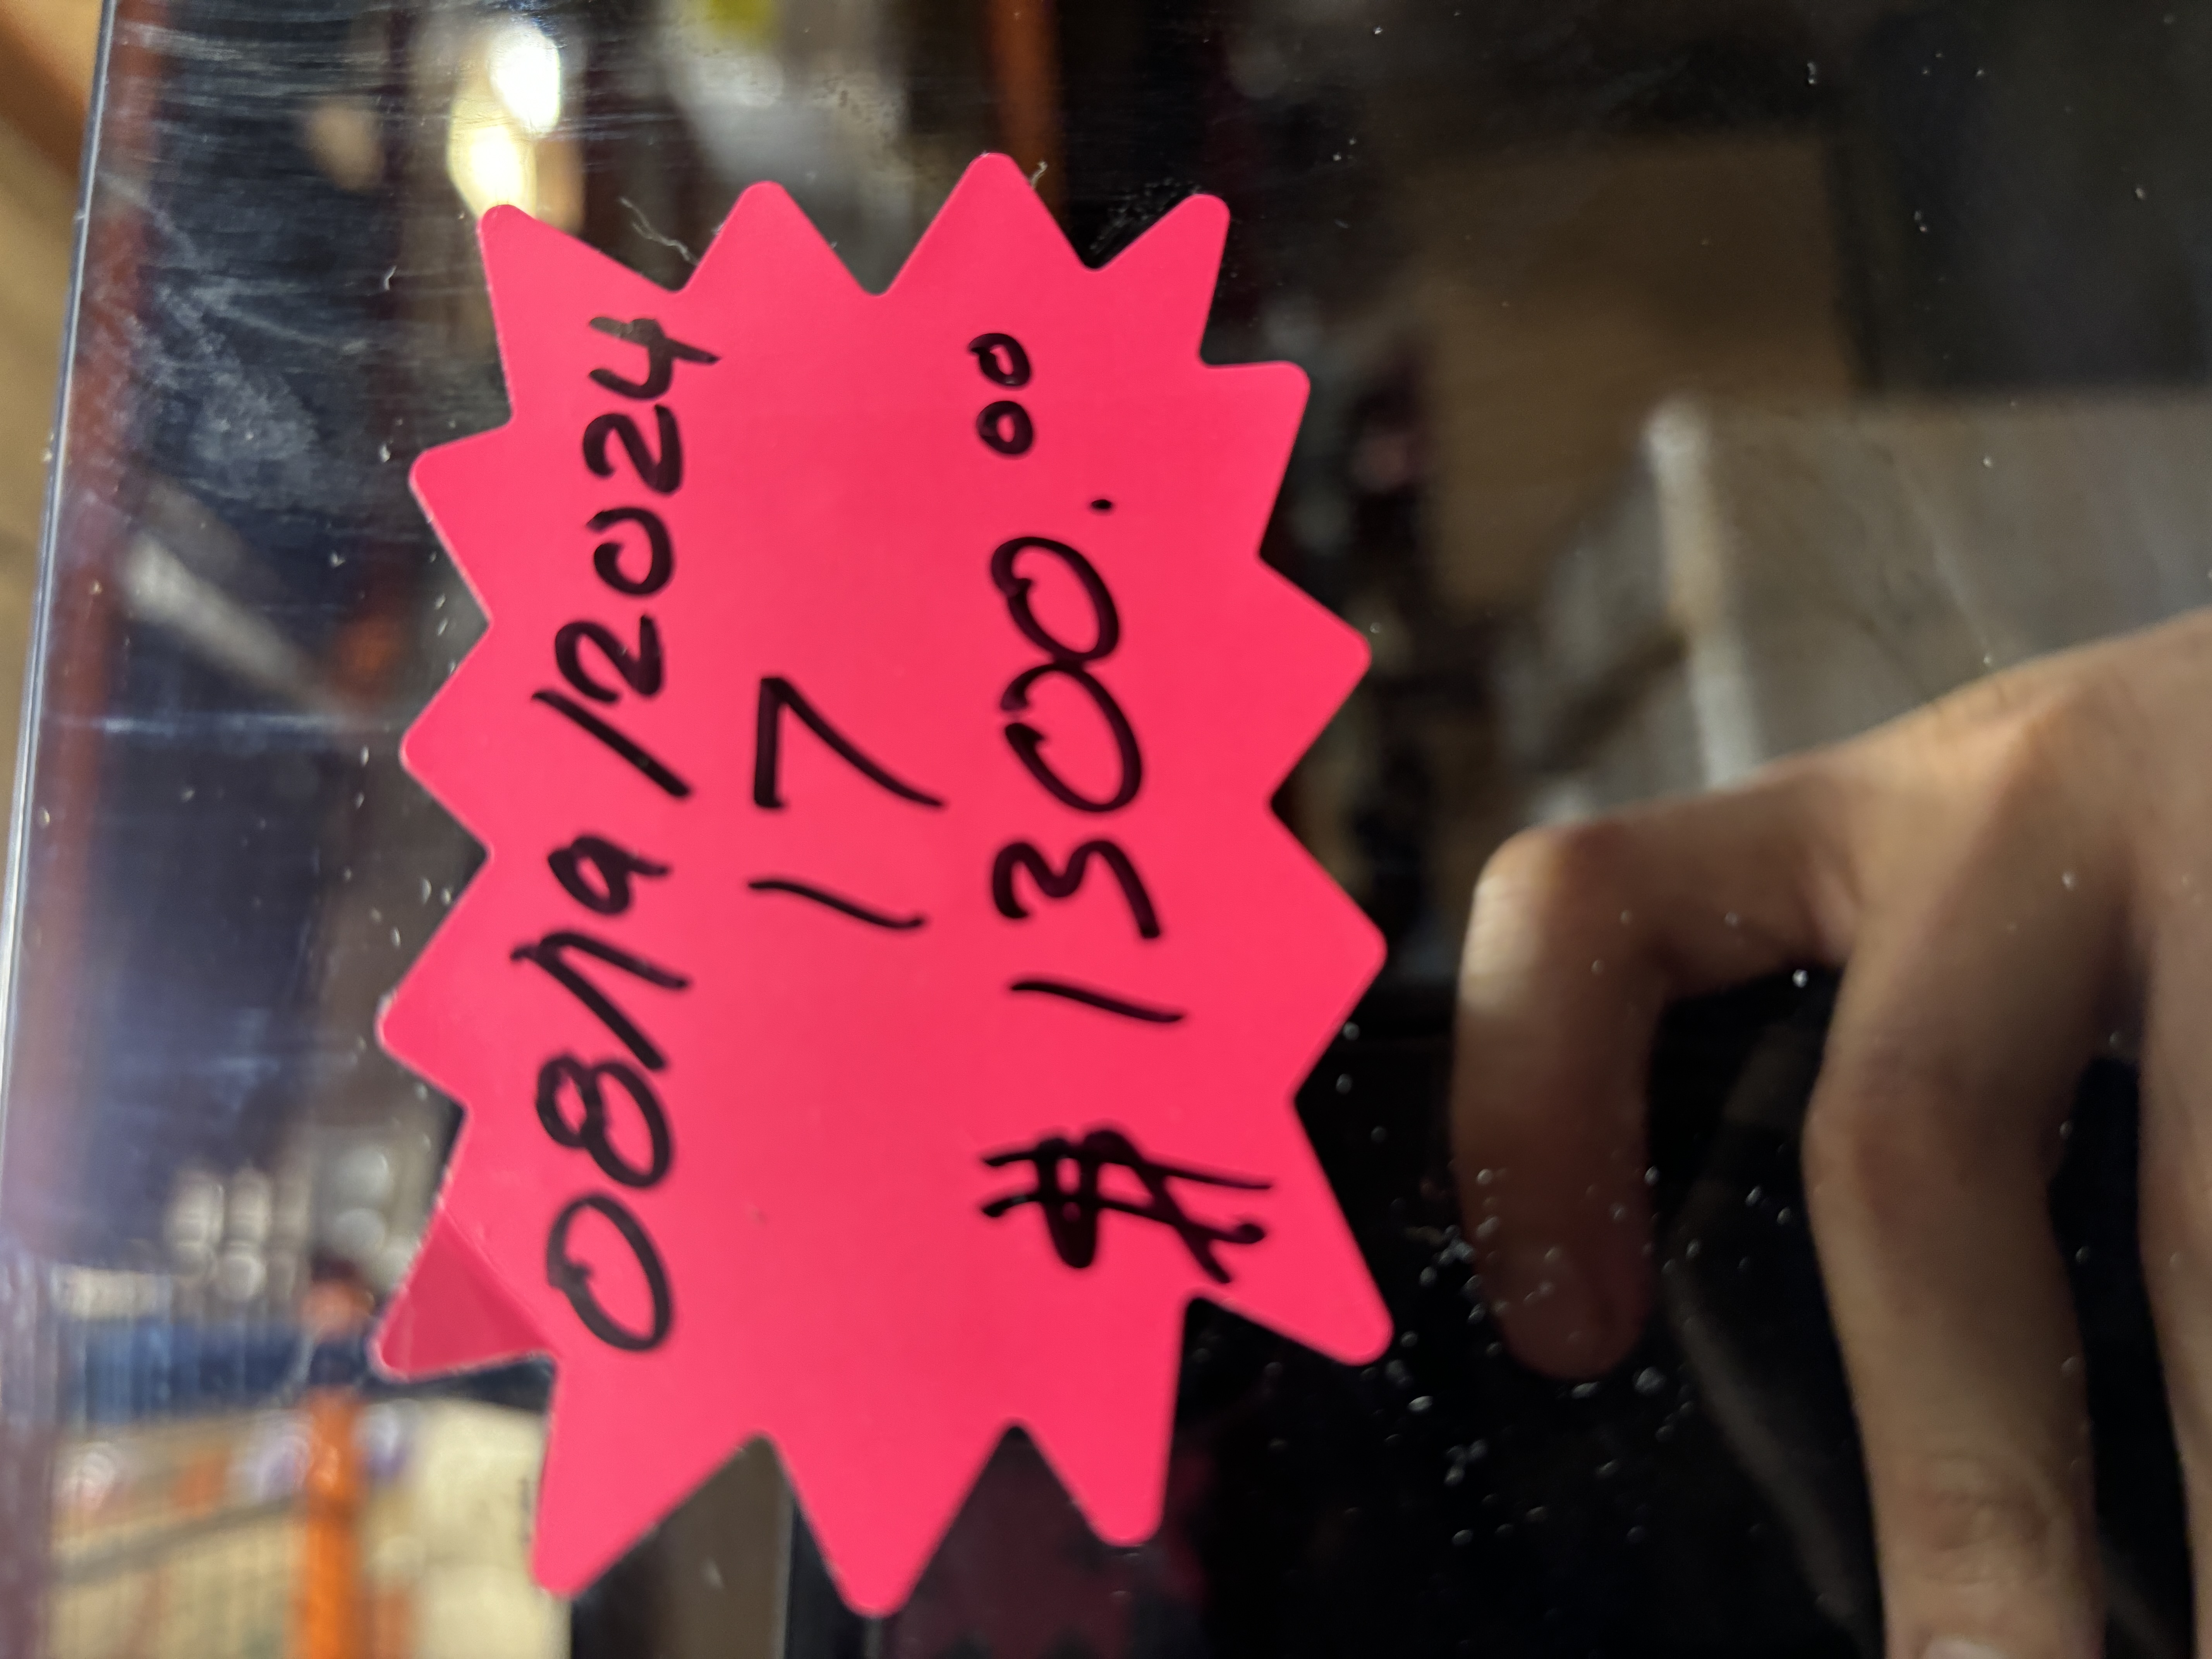 08/19/2024
17
$1300.00